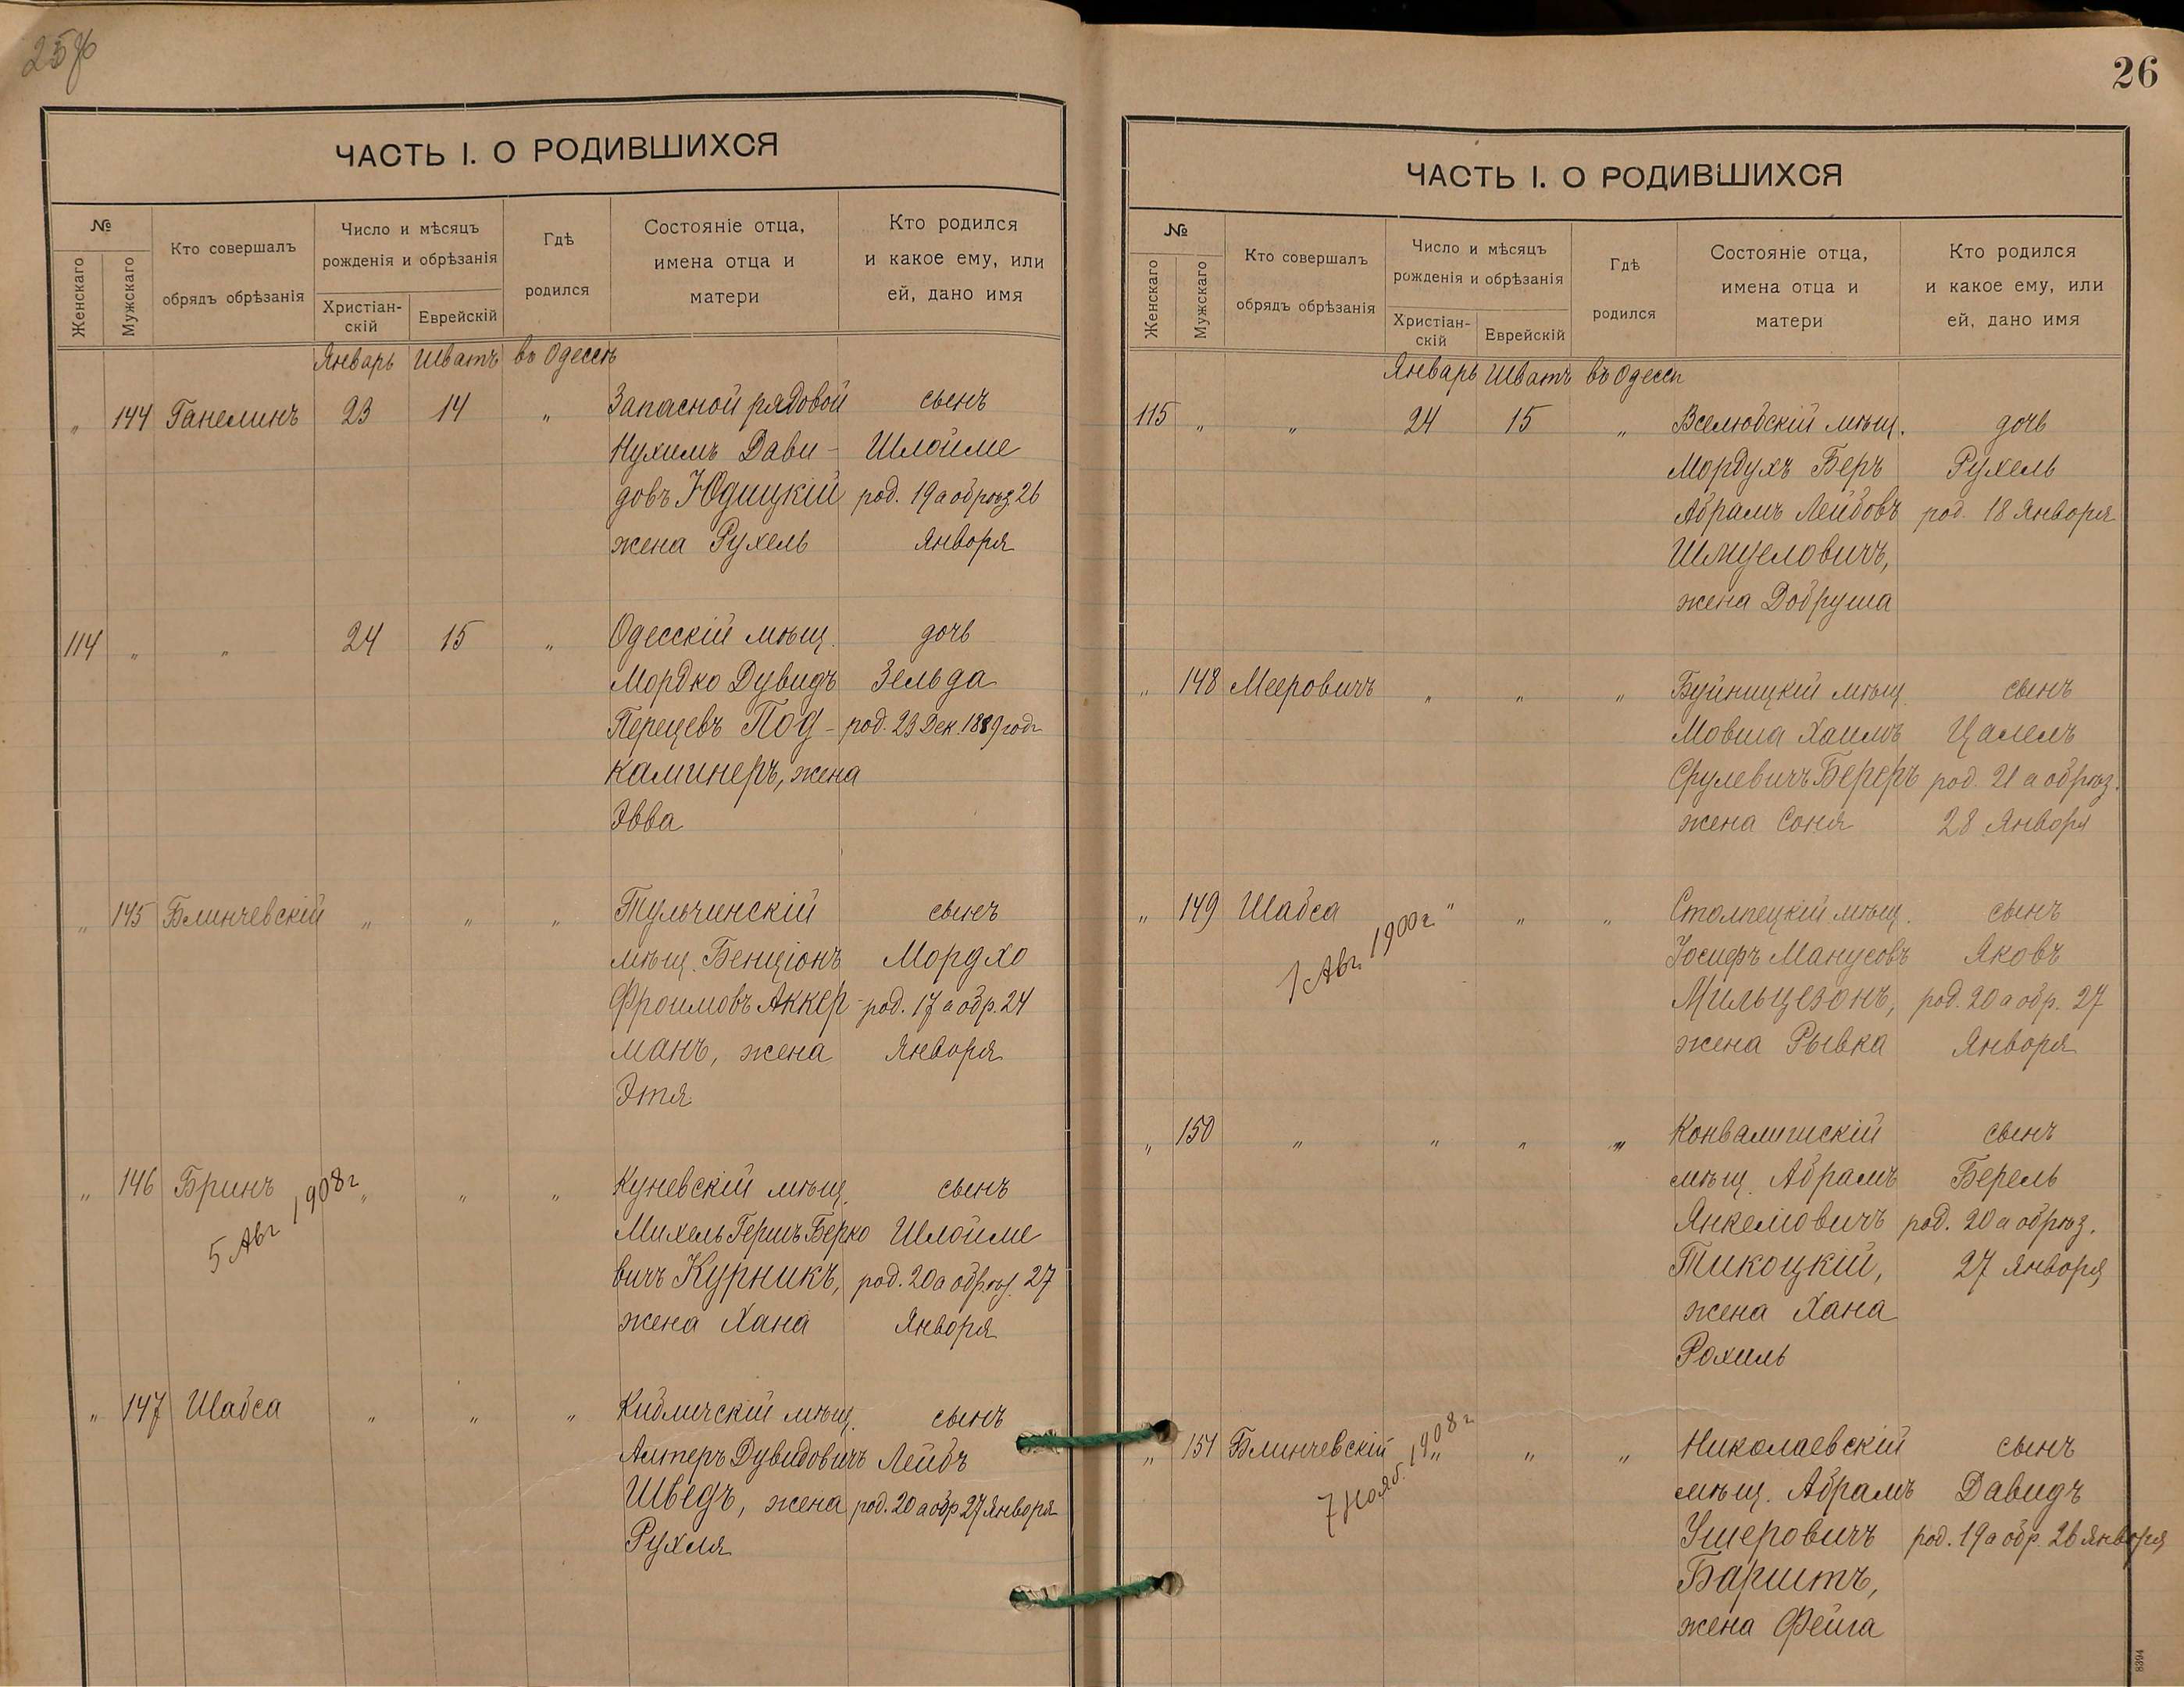 25 об
ЧАСТЬ I. О РОДИВШИХСЯ
№
Женскаго
Мужскаго
Кто совершалъ
обрядъ обрѣзанія
Число и мѣсяцъ
рожденія и обрѣзанія
Христіан-
скій
Еврейскій
Гдѣ
родился
Состояніе отца,
имена отца и
матери
Кто родился
и какое ему, или
ей, дано имя
Январь Шватъ въ Одессѣ
„ 144 Ганелинъ 23 14 „ Запасной рядовой сынъ
Нухимъ Дави- Шлойме
довъ Юдицкій род. 19 а обрѣз. 26
жена Рухель Января
114 „ „ 24 15 „ Одесскій мѣщ. дочь
Мордко Дувидъ Зельда
Перецевъ Под- род. 23 Дек. 1889 года
каминеръ, жена
Эвва
„ 145 Блинчевскій „ „ „ Тульчинскій сынъ
мѣщ. Бенціонъ Мордхо
Фроимовъ Аккер- род. 17 а обр. 24
манъ, жена Января
Этя
„ 146 Бринъ „ „ „ Куневскій мѣщ. сынъ
5 Авг 1908 г
Михель Гершъ Берко Шлойме
вичъ Курникъ, род. 20 а обрѣз. 27
жена Хана Января
„ 147 Шабса „ „ „ Кибличскій мѣщ. сынъ
Алтеръ Дувидовичъ Лейбъ
Шведъ, жена род. 20 а обр. 27 Января
Рухля
26
ЧАСТЬ I. О РОДИВШИХСЯ
№
Женскаго
Мужскаго
Кто совершалъ
обрядъ обрѣзанія
Число и мѣсяцъ
рожденія и обрѣзанія
Христіан-
скій
Еврейскій
Гдѣ
родился
Состояніе отца,
имена отца и
матери
Кто родился
и какое ему, или
ей, дано имя
Январь Шватъ въ Одессѣ
115 „ „ 24 15 „ Вселюбскій мѣщ. дочь
Мордухъ Беръ Рухель
Абрамъ Лейбовъ род. 18 Января
Шмуеловичъ,
жена Добруша
„ 148 Мееровичъ „ „ „ Буйницкій мѣщ. сынъ
Мовша Хаимъ Цалель
Срулевичъ Береръ род. 21 а обрѣз.
жена Соня 28 Января
„ 149 Шабса „ „ „ Столпецкій мѣщ. сынъ
1 Авг. 1900 г.
Іосифъ Манусовъ Яковъ
Мильцезонъ, род. 20 а обр. 27
жена Рывка Января
„ 150 „ „ „ „ Конвалишскій сынъ
мѣщ. Абрамъ Берель
Янкеловичъ род. 20 а обрѣз.
Тикоцкій, 27 Января
жена Хана
Рохиль
„ 151 Блинчевскій „ „ „ Николаевскій сынъ
7 Нояб. 1908 г
мѣщ. Абрамъ Давидъ
Ушеровичъ род. 19 а обр. 26 Января
Барштъ,
жена Фейга
8394